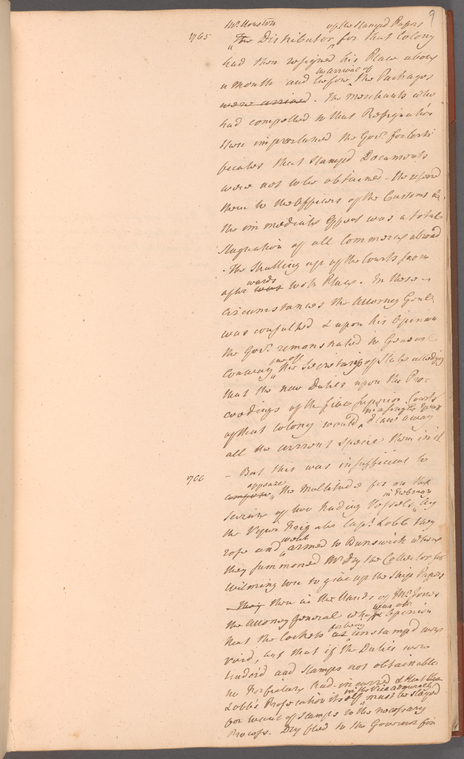 9
Mr Houston of the Stamped Papers
1765 "The Distributor for that Colony
had then resigned his Place above
a month and before arrival of The Packages
were arrived. The merchants who
had compelled to that Resignation
then importuned the Govr. for Certi
ficates that Stamped Documents
were not to be obtained - He refered
them to the Officers of the Customs &
the immediate Effect was a total
Stagnation of all Commerce abroad
- The Shutting up of the Courts soon
after wards took Place. In these
circumstances the Attorney Genl.
was consulted & upon his Opinion
the Govr. remonstrated to General
Conway one of his Secretarys of State
that the new Duties upon the Pro-
ceedings of the five superior Courts
of that Colony would in a single Year draw away
all the current Specie then in it
1766 - But this was insufficient to
appease the Multitude for on the
seizure of two trading Vessels in February by
the Viper Frigate Capt. Lobb they
rose and went armed to Brunswick where
they summoned Mr Dry the Collector for
Wilmington to give up the Ships Papers
They then in the Hands of Mr Jones
the Attorney General whose Opinion
that the Cockets for being unstamped were
void, but that if the Duties were
tendred and Stamps not obtainable
Lobb's Prosecution itself must be stayed
for want of Stamps to the necessary
Process. Dry fled to the Governor for